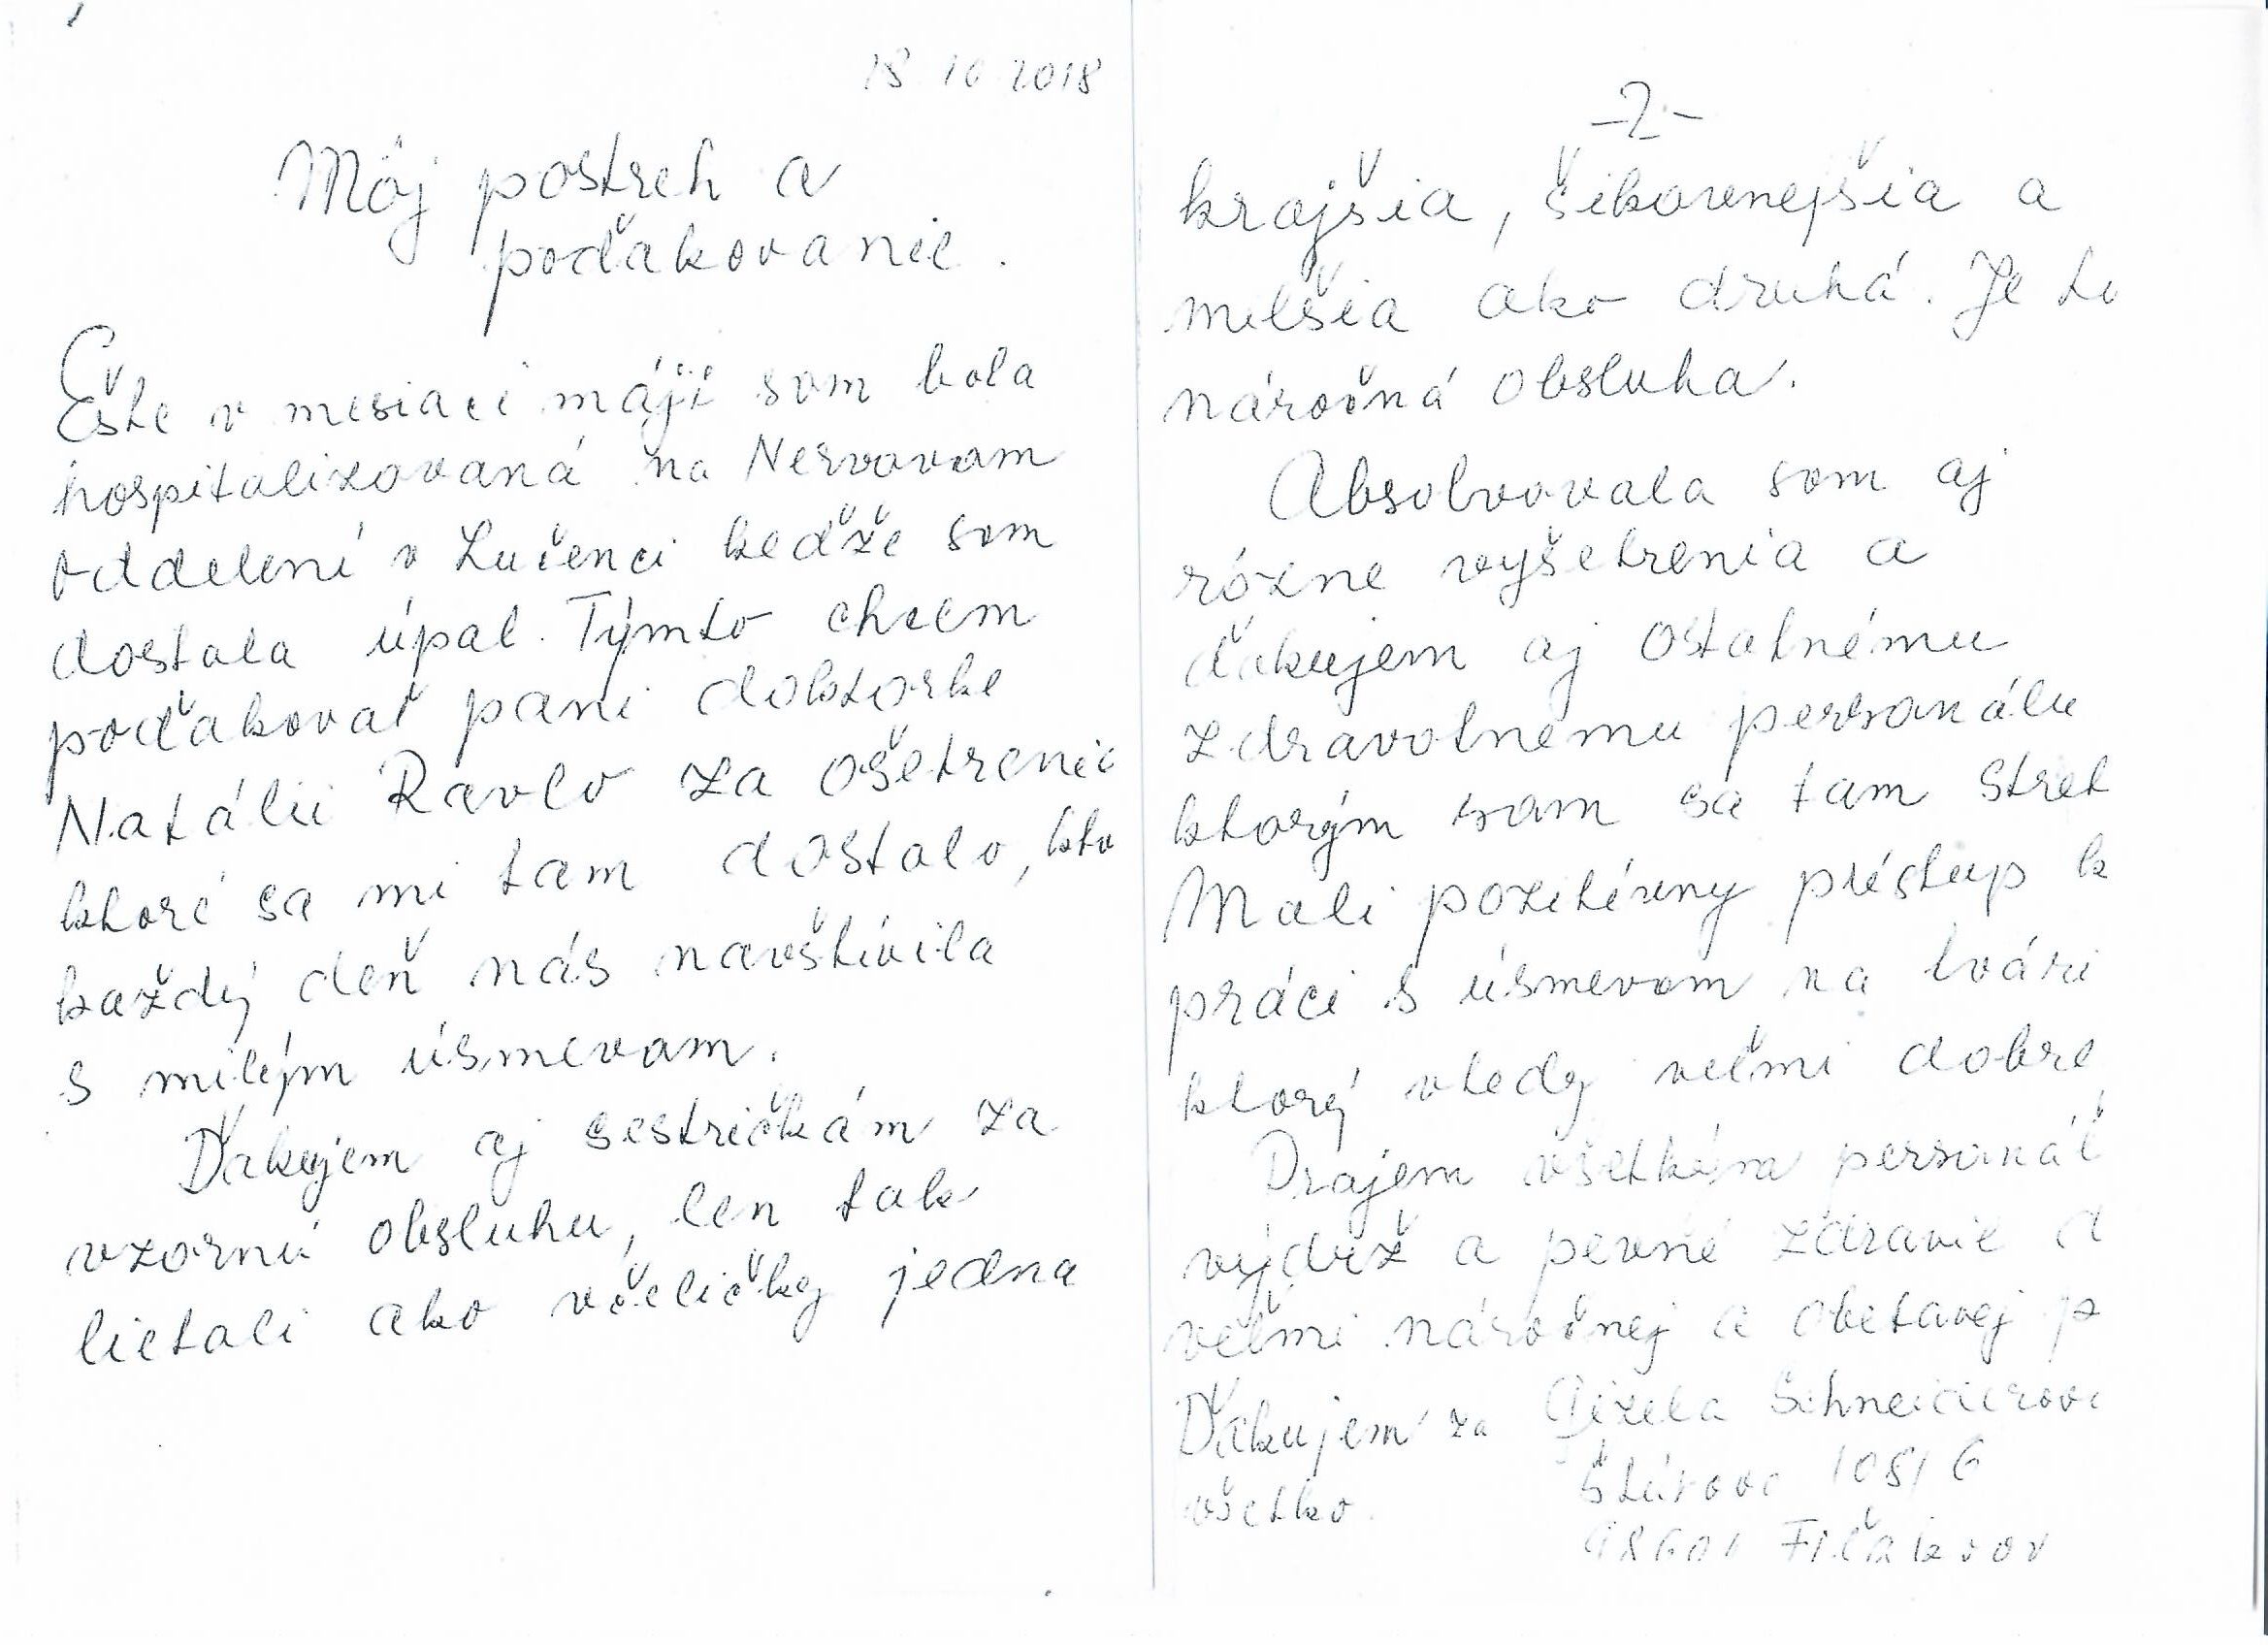 18 10 2018
Môj postreh a
poďakovanie.
Ešte v mesiaci máji som bola
hospitalizovaná na Nervovom
oddelení v Lučenci keďže som
dostala úpal. Týmto chcem
poďakovať pani doktorke
Natálii Ravlo za ošetrenie
ktoré sa mi tam dostalo, kto
každý deň nás navštívila
s milým úsmevom.
Ďakujem aj sestričkám za
vzornú obsluhu, len tak
lietali ako včeličky jedna
-2-
krajšia, šikovnejšia a
milšia ako druhá. Je to
náročná obsluha.
Absolvovala som aj
rózne vyšetrenia a
ďakujem aj ostatnému
zdravotnému personálu
ktorým som sa tam stret
Mali pozitívny prístup k
práci s úsmevom na tvári
ktorý vtedy veľmi dobre
Prajem všetkým personál
výdrž a pevné zdravie d
veľmi náročnej a obetavej p
Ďakujem za Gizela Schneiderov
všetko. Štúrova 1081 6
98601 Fiľakovo